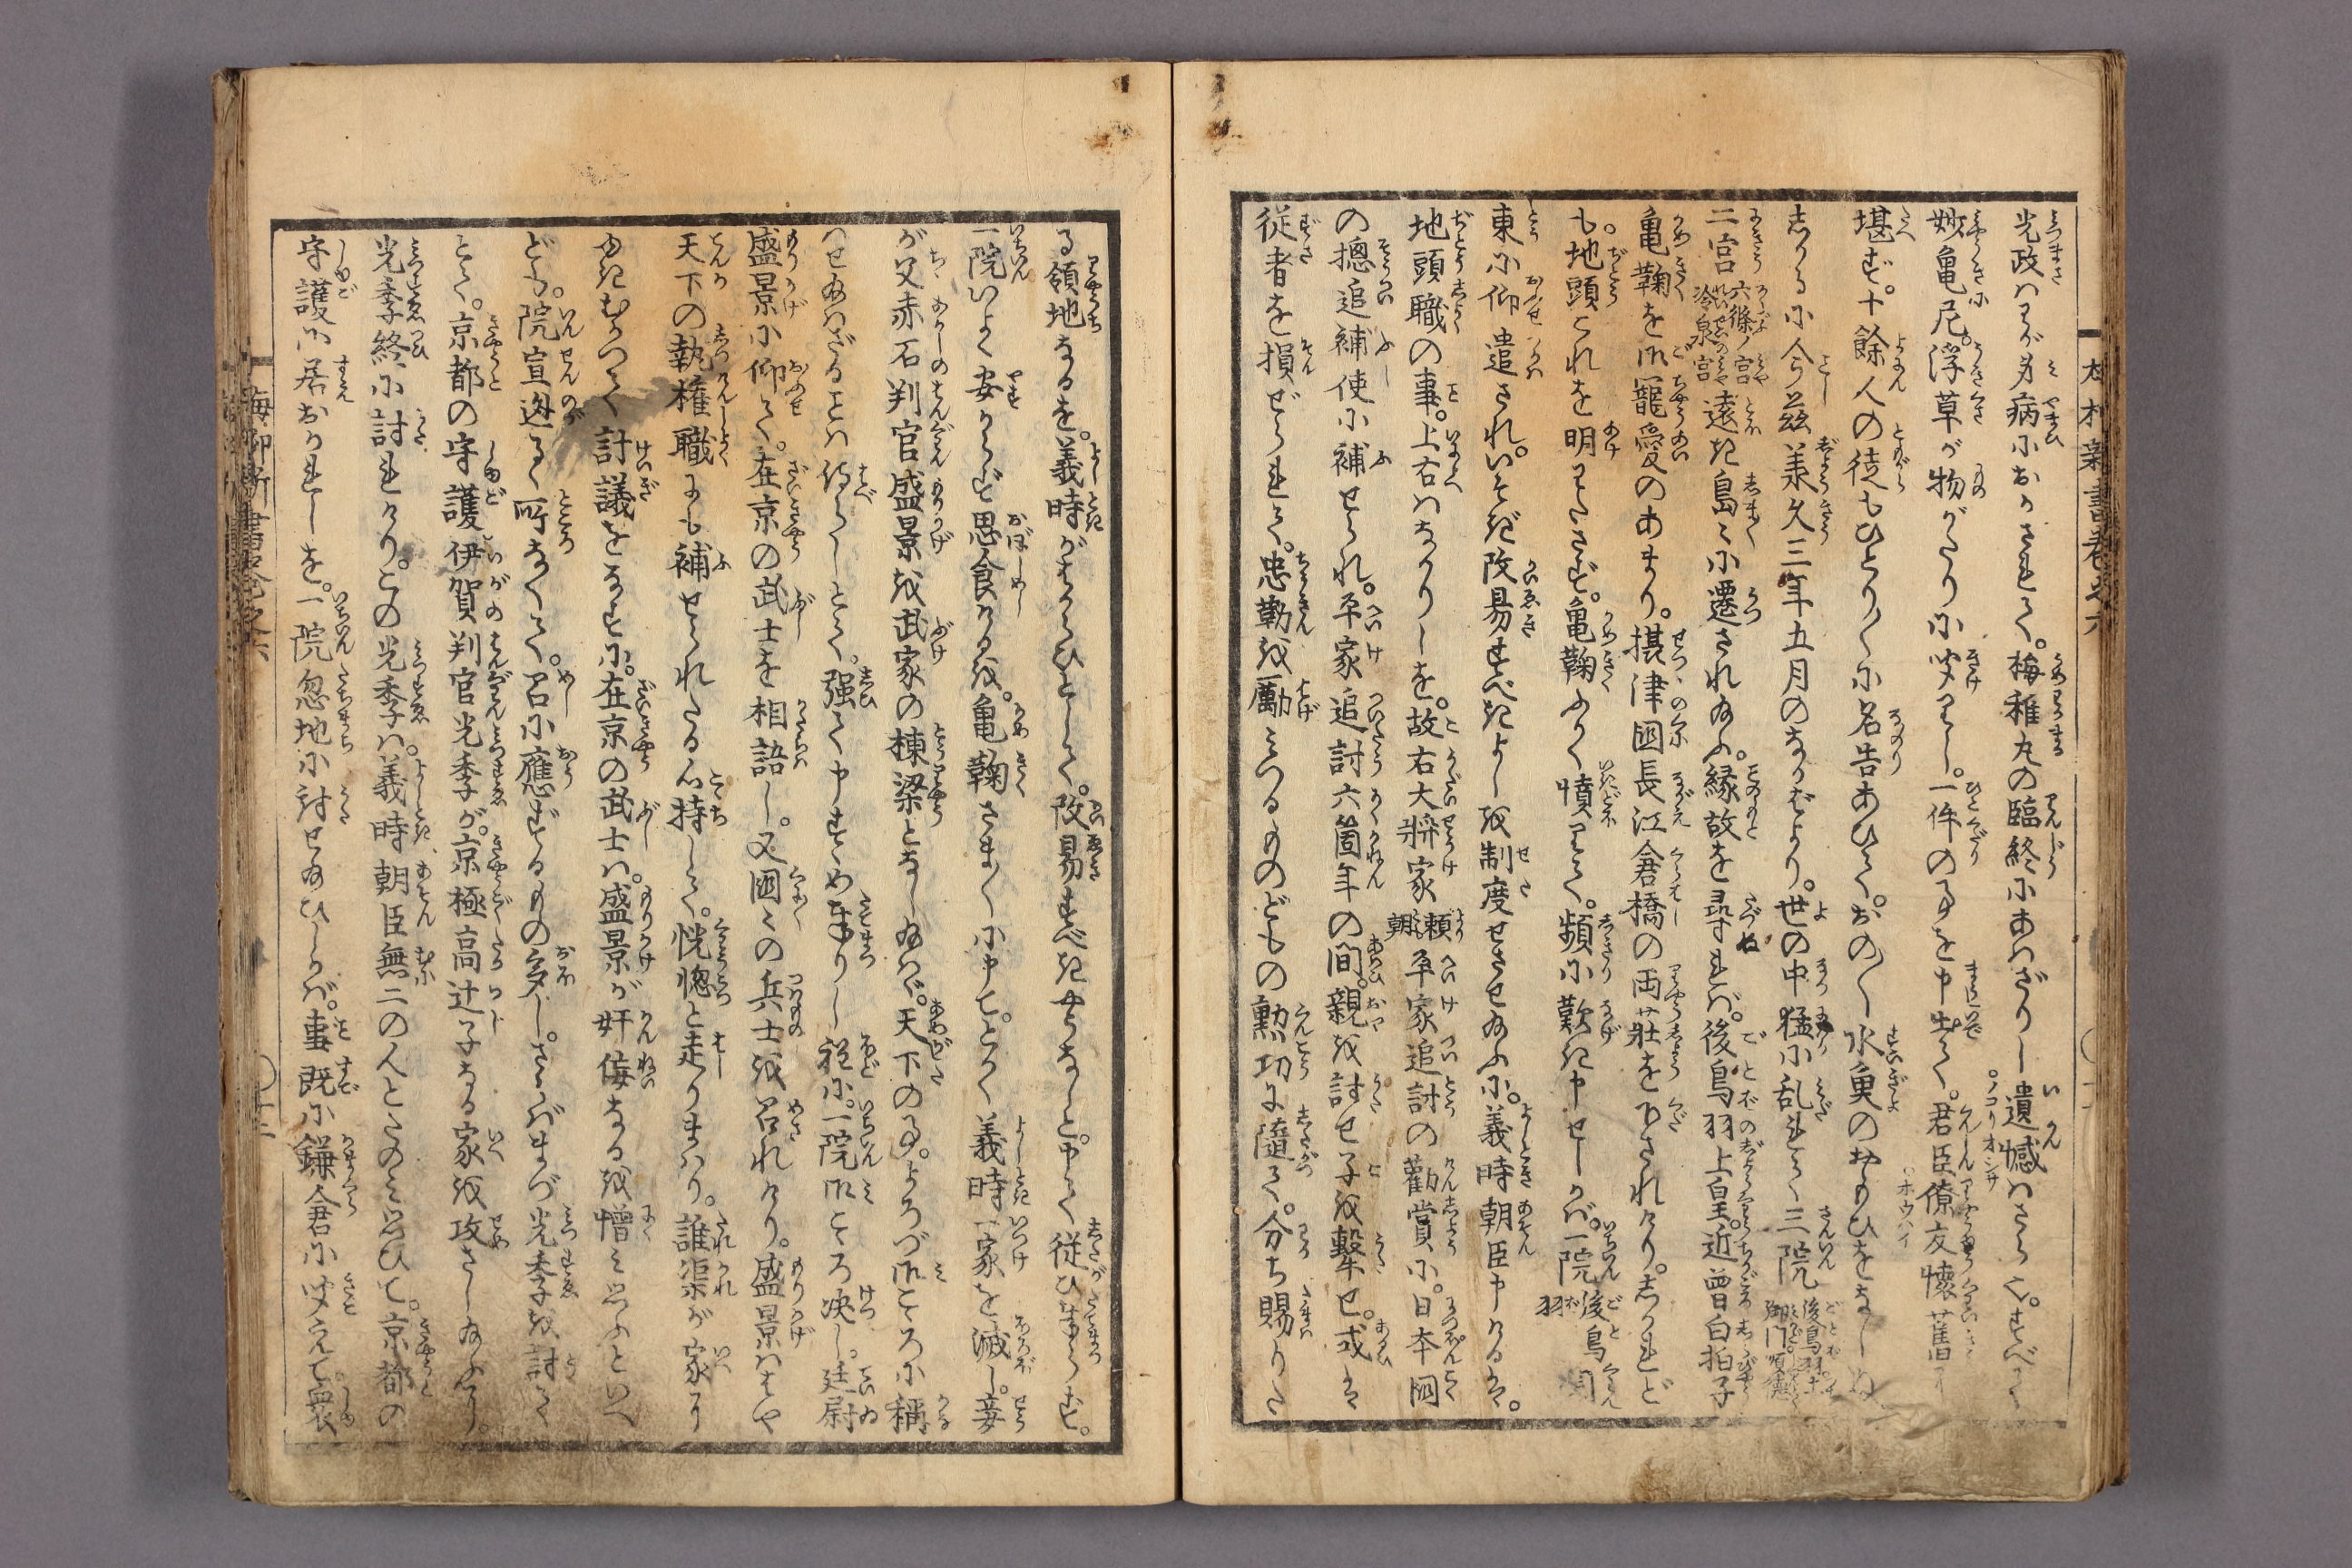 光政はわが身病におかされて。梅稚丸の臨終にあはざりし遺憾はさら也。すべて
妙亀尼浮草が物がたりに聞わし。一件の事を申出て。君臣僚友懐旧に
堪ず。十余人の徒もひとり〳〵に名告あひて。おの〳〵水魚のおもひをなしぬ
しかるに今茲承久三年五月のなかばより。世の中猛に乱れて三院
二宮六條ノ宮冷泉宮遠き島々に遷され給ふ。縁故を尋れば。後鳥羽上皇。近曽白拍子
亀鞠を御寵愛のあまり。摂津国長江倉橋の両荘を下されけり。しかれど
も。地頭これを明わたさず。亀鞠ふかく憤りて。頻に歎き申せしかば。一院後鳥羽関
東に仰遣され。いそぎ改易すべきよしを制度せさせ給ふに。義時朝臣申けるは。
地頭職の事。上古はなかりしを。故右大将家頼朝平家追討の勧賞に。日本国
の惣追補使に補せられ。平家追討六箇年の間。親を討せ子を撃せ。或は
従者を損ぜられて。忠勤を励みつるものどもの勲功に随て。分ち賜りた
る領地なるを。義時がはからひとして。改易すべきやうなしと。申て従ひ奉らず。
一院いよ〳〵安からず思食けるを。亀鞠さま〴〵に申て。とかく義時一家を滅し。妾
が父赤石判官盛景を武家の棟梁となし給はゞ。天下の事。よろづ御こころに称
はせ給はざることは侍らじとて。強て申すゝめ奉りし程に。一院御こころ決し。廷尉
盛景に仰て。在京の武士を相語し。又国々の兵士を召れけり。盛景はや
天下の執権職にも補せられたる心持して。恍惚と走りまはり。誰渠が家に
ゆきむかつて計議をなすに。在京の武士は。盛景が奸侫なるを憎み思ふといへ
ども。院宣逃るゝ所なくて。召に応ずるもの多し。さらばまづ光季を討て
とて。京都の守護伊賀判官光季が。京極高辻子なる家を攻さし給ふに。
光季終に討れけり。この光季は。義時朝臣無二の人とたのみ思ひて。京都の
守護に居おかれしを。一院忽地に討せ給ひしかば。事既に鎌倉に聞えて